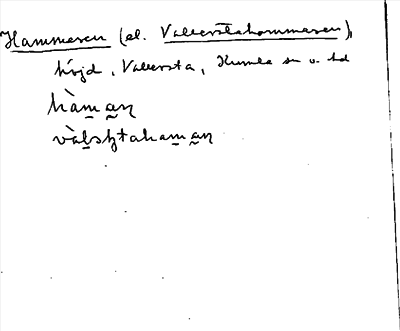 Hammaren (el. Vallerstahammaren),
höjd, Vallersta, Kumla sn o. hd
hàman
vàlstahaman